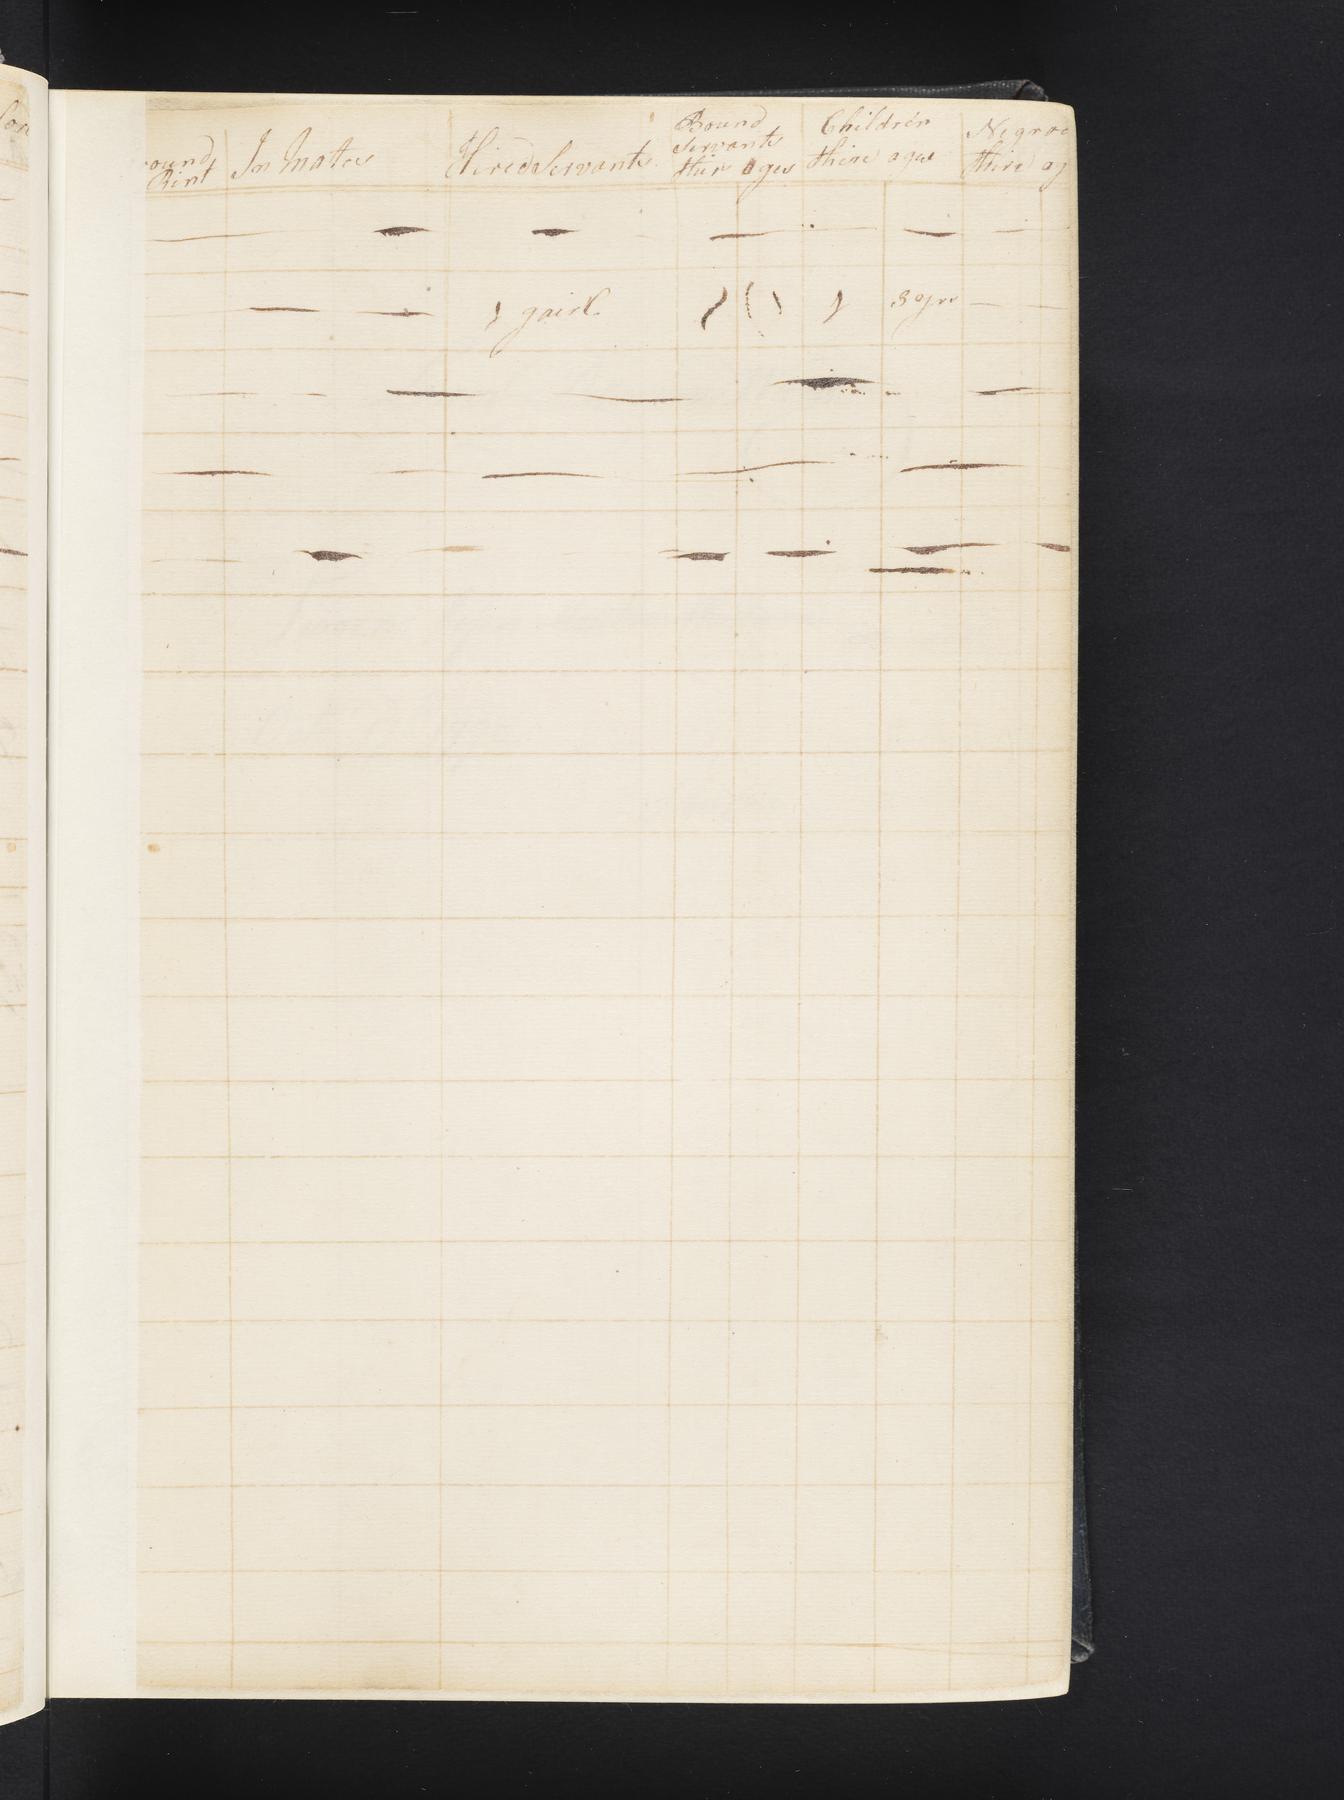 ound Rint | In Mates | Hired Servants | Bound Servants thir ages | Children thire ages | Negroe thire ag
1 gairl | 1 | 1 | 3 yrs